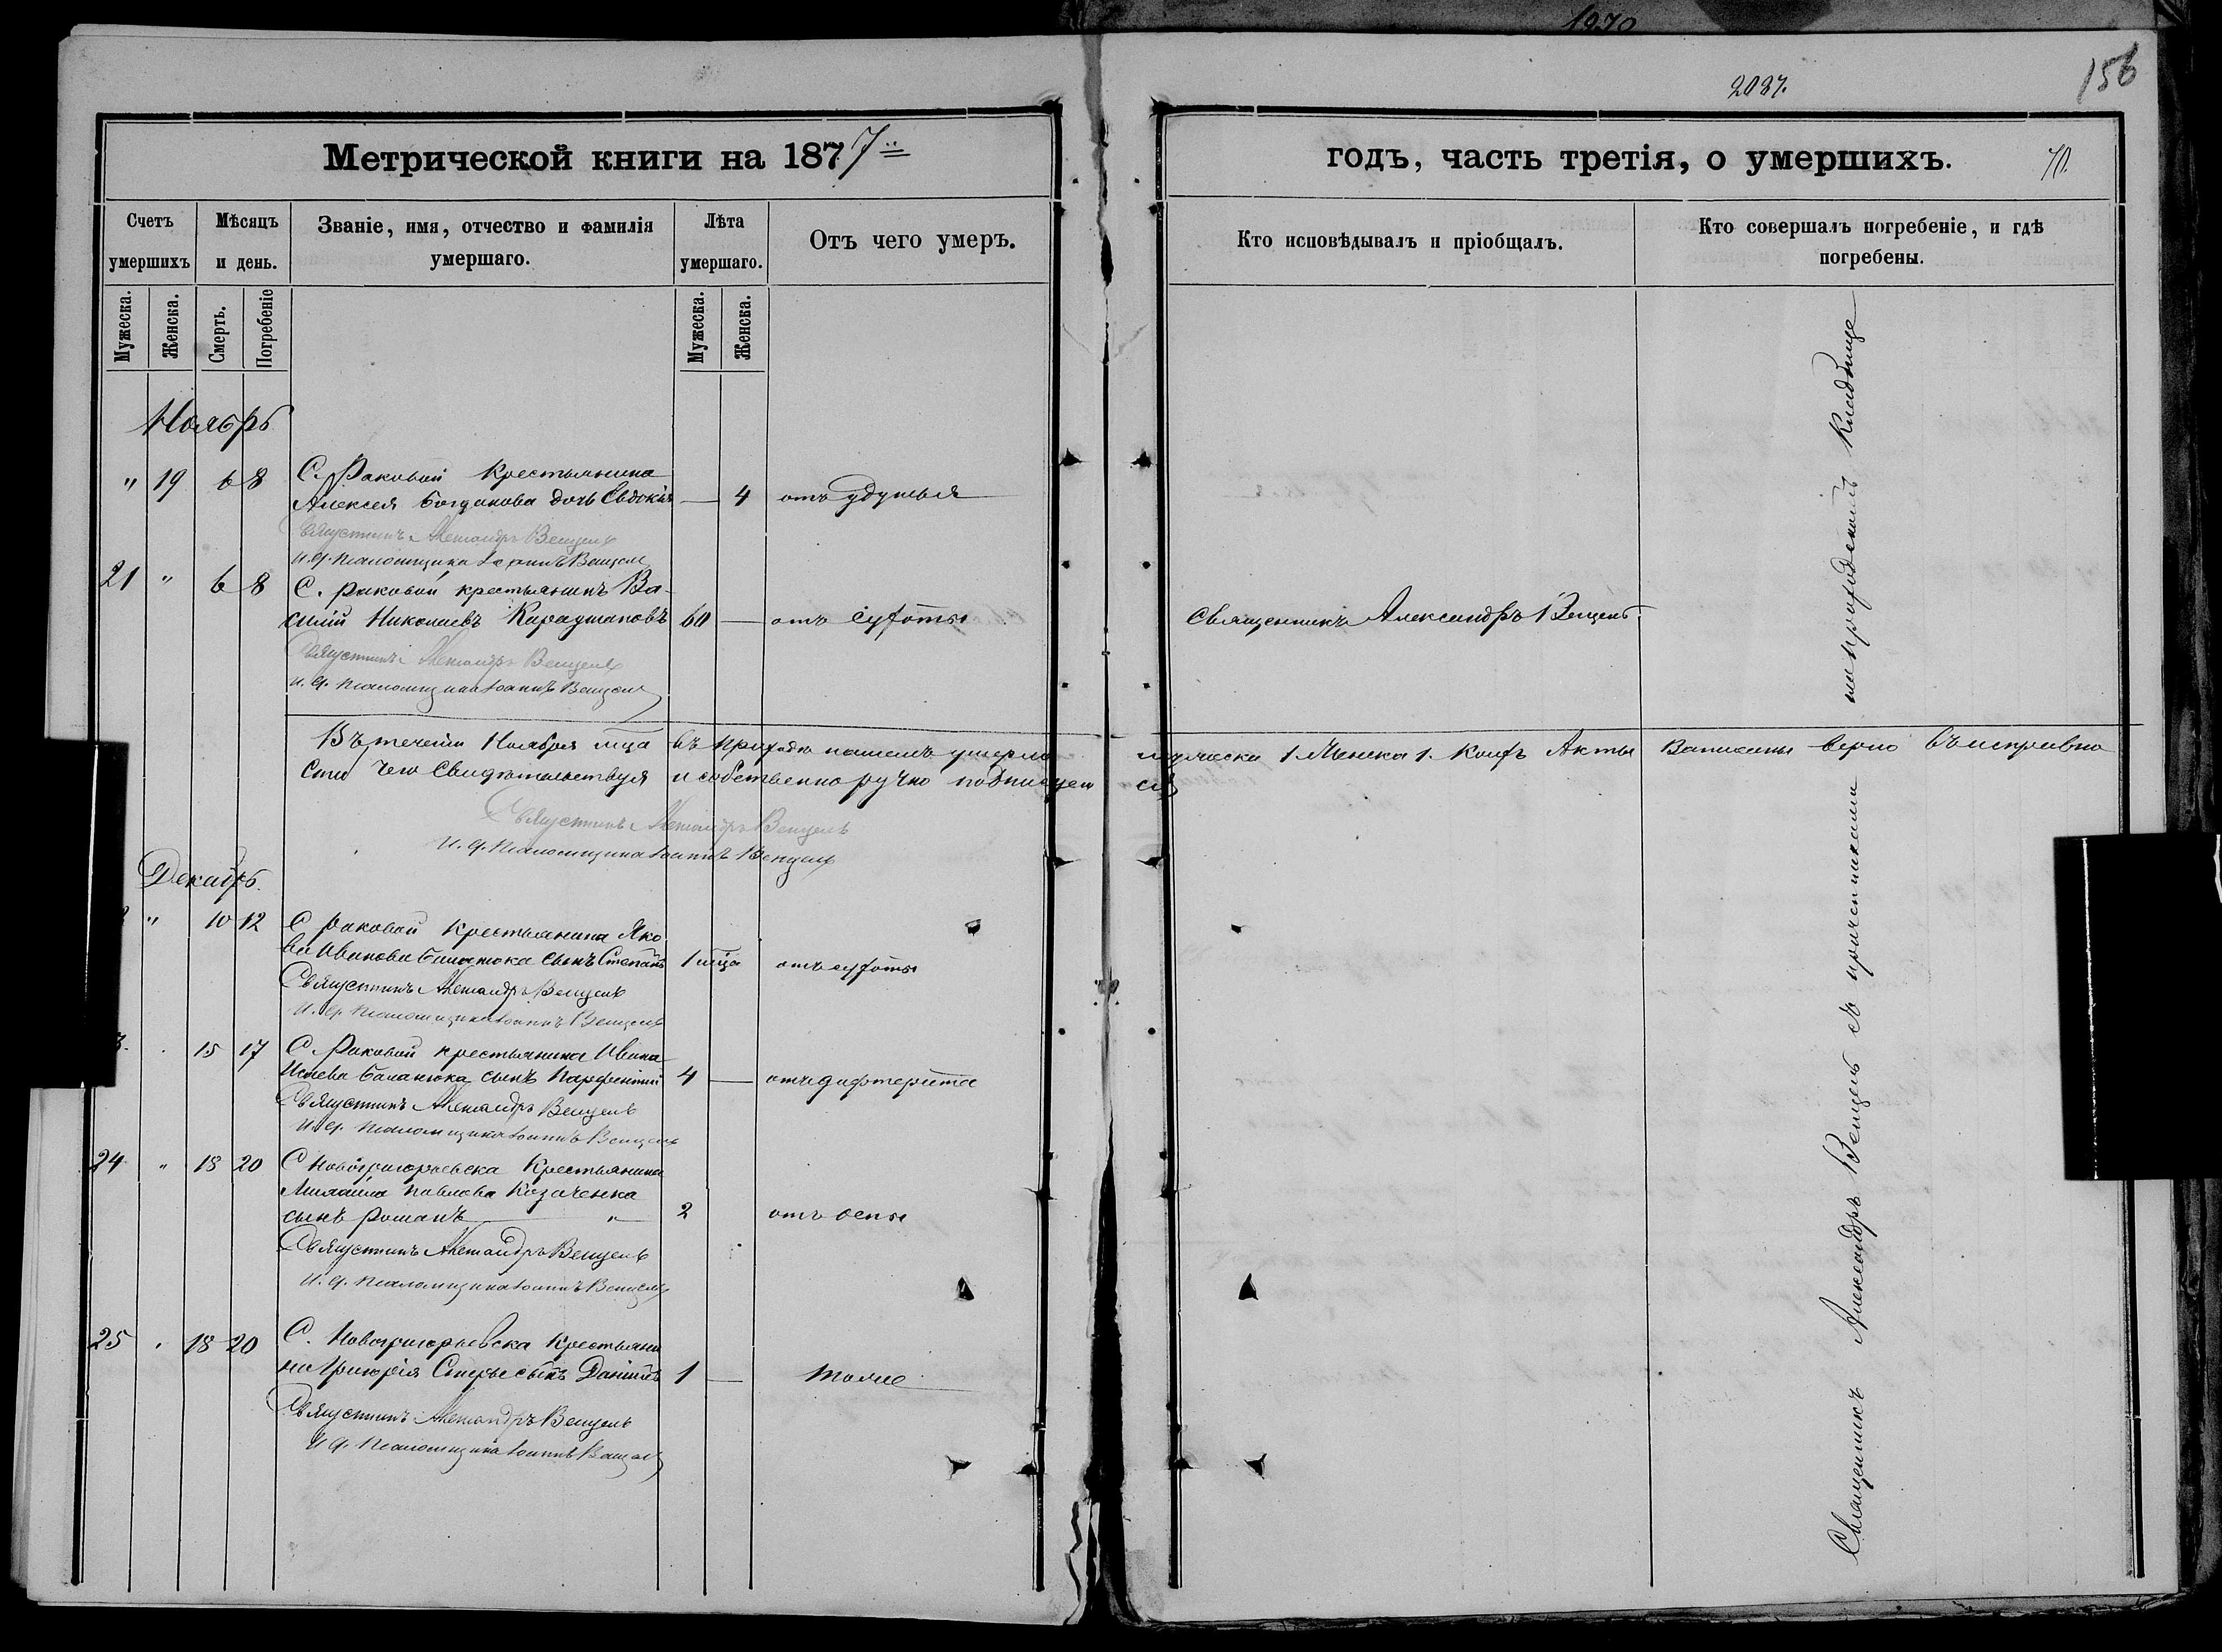 1970
2037.
156
Метрической книги на 1877
годъ, часть третія, о умершихъ.
70.
Счетъ умершихъ
Мѣсяцъ и день.
Званіе, имя, отчество и фамилія умершаго.
Лѣта умершаго.
Отъ чего умеръ.
Кто исповѣдывалъ и пріобщалъ.
Кто совершалъ погребеніе, и гдѣ погребены.
Мужеска.
Женска.
Смерть.
Погребеніе
Мужеска.
Женска.
Ноябрь
" 19 6 8 С. Раковой Крестьянина
Алексея Богданова дочь Евдокія — 4 отъ удушья
Священникъ Александръ Венцель
И. д. Псаломщика Іоаннъ Венцель
21 " 6 8 С. Раковой крестьянинъ Ва-
силій Николаевъ Караушановъ 60 — отъ сухоты
Священникъ Александръ Венцель
Священникъ Александръ Венцель
И. д. Псаломщика Іоаннъ Венцель
Въ течении Ноября мца въ приходѣ нашемъ умерло мужеска 1 Женска 1. Акты Записаны верно
чего Свидѣтельствуя и собственноручно подписуемся
Священникъ Александръ Венцель
И. д. Псаломщика Іоаннъ Венцель
Декабрь
" 10 12 С Раковой Крестьянина Яко
ва Иванова Баланюка сынъ Степанъ 1 мца отъ сухоты
Священникъ Александръ Венцель
И. д. Псаломщика Іоаннъ Венцель
15 17 С. Раковой крестьянина Ивана
Исаева Баланюка сынъ Парфентій 4 — отъ дифтерита
Священникъ Александръ Венцель
И. д. Псаломщика Іоаннъ Венцель
24 " 18 20 С Новогригорьевска Крестьянина
Михаила Павлова Козаченка
сынъ Романъ " 2 отъ оспы
Священникъ Александръ Венцель
И. д. Псаломщика Іоаннъ Венцель
25 " 18 20 С. Новогригорьевска Крестьяни
на Григорія сынъ Даніилъ 1 — тоже
Священникъ Александръ Венцель
И. д. Псаломщика Іоаннъ Венцель
Священникъ Александръ Венцель съ причетниками на приходскомъ Кладбище